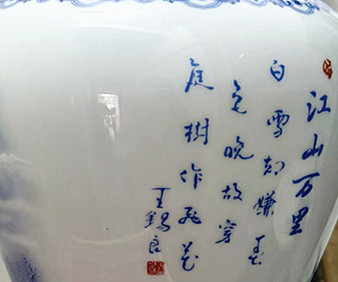 江山万里
白雪却嫌春
色晚故穿
庭树作飞花
王锡良